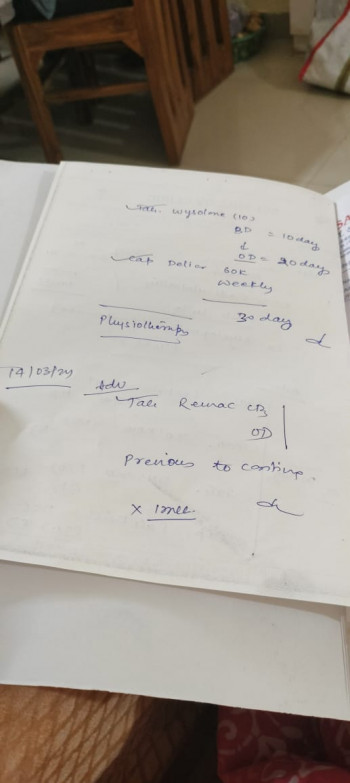 Tab. Wysolone (10)
BD = 10 day
↓
OD = 20 day
Cap
60K
weekly
Physiotherapy
30 day
14/03/24
Adv
Tab
OD
Previous to continue.